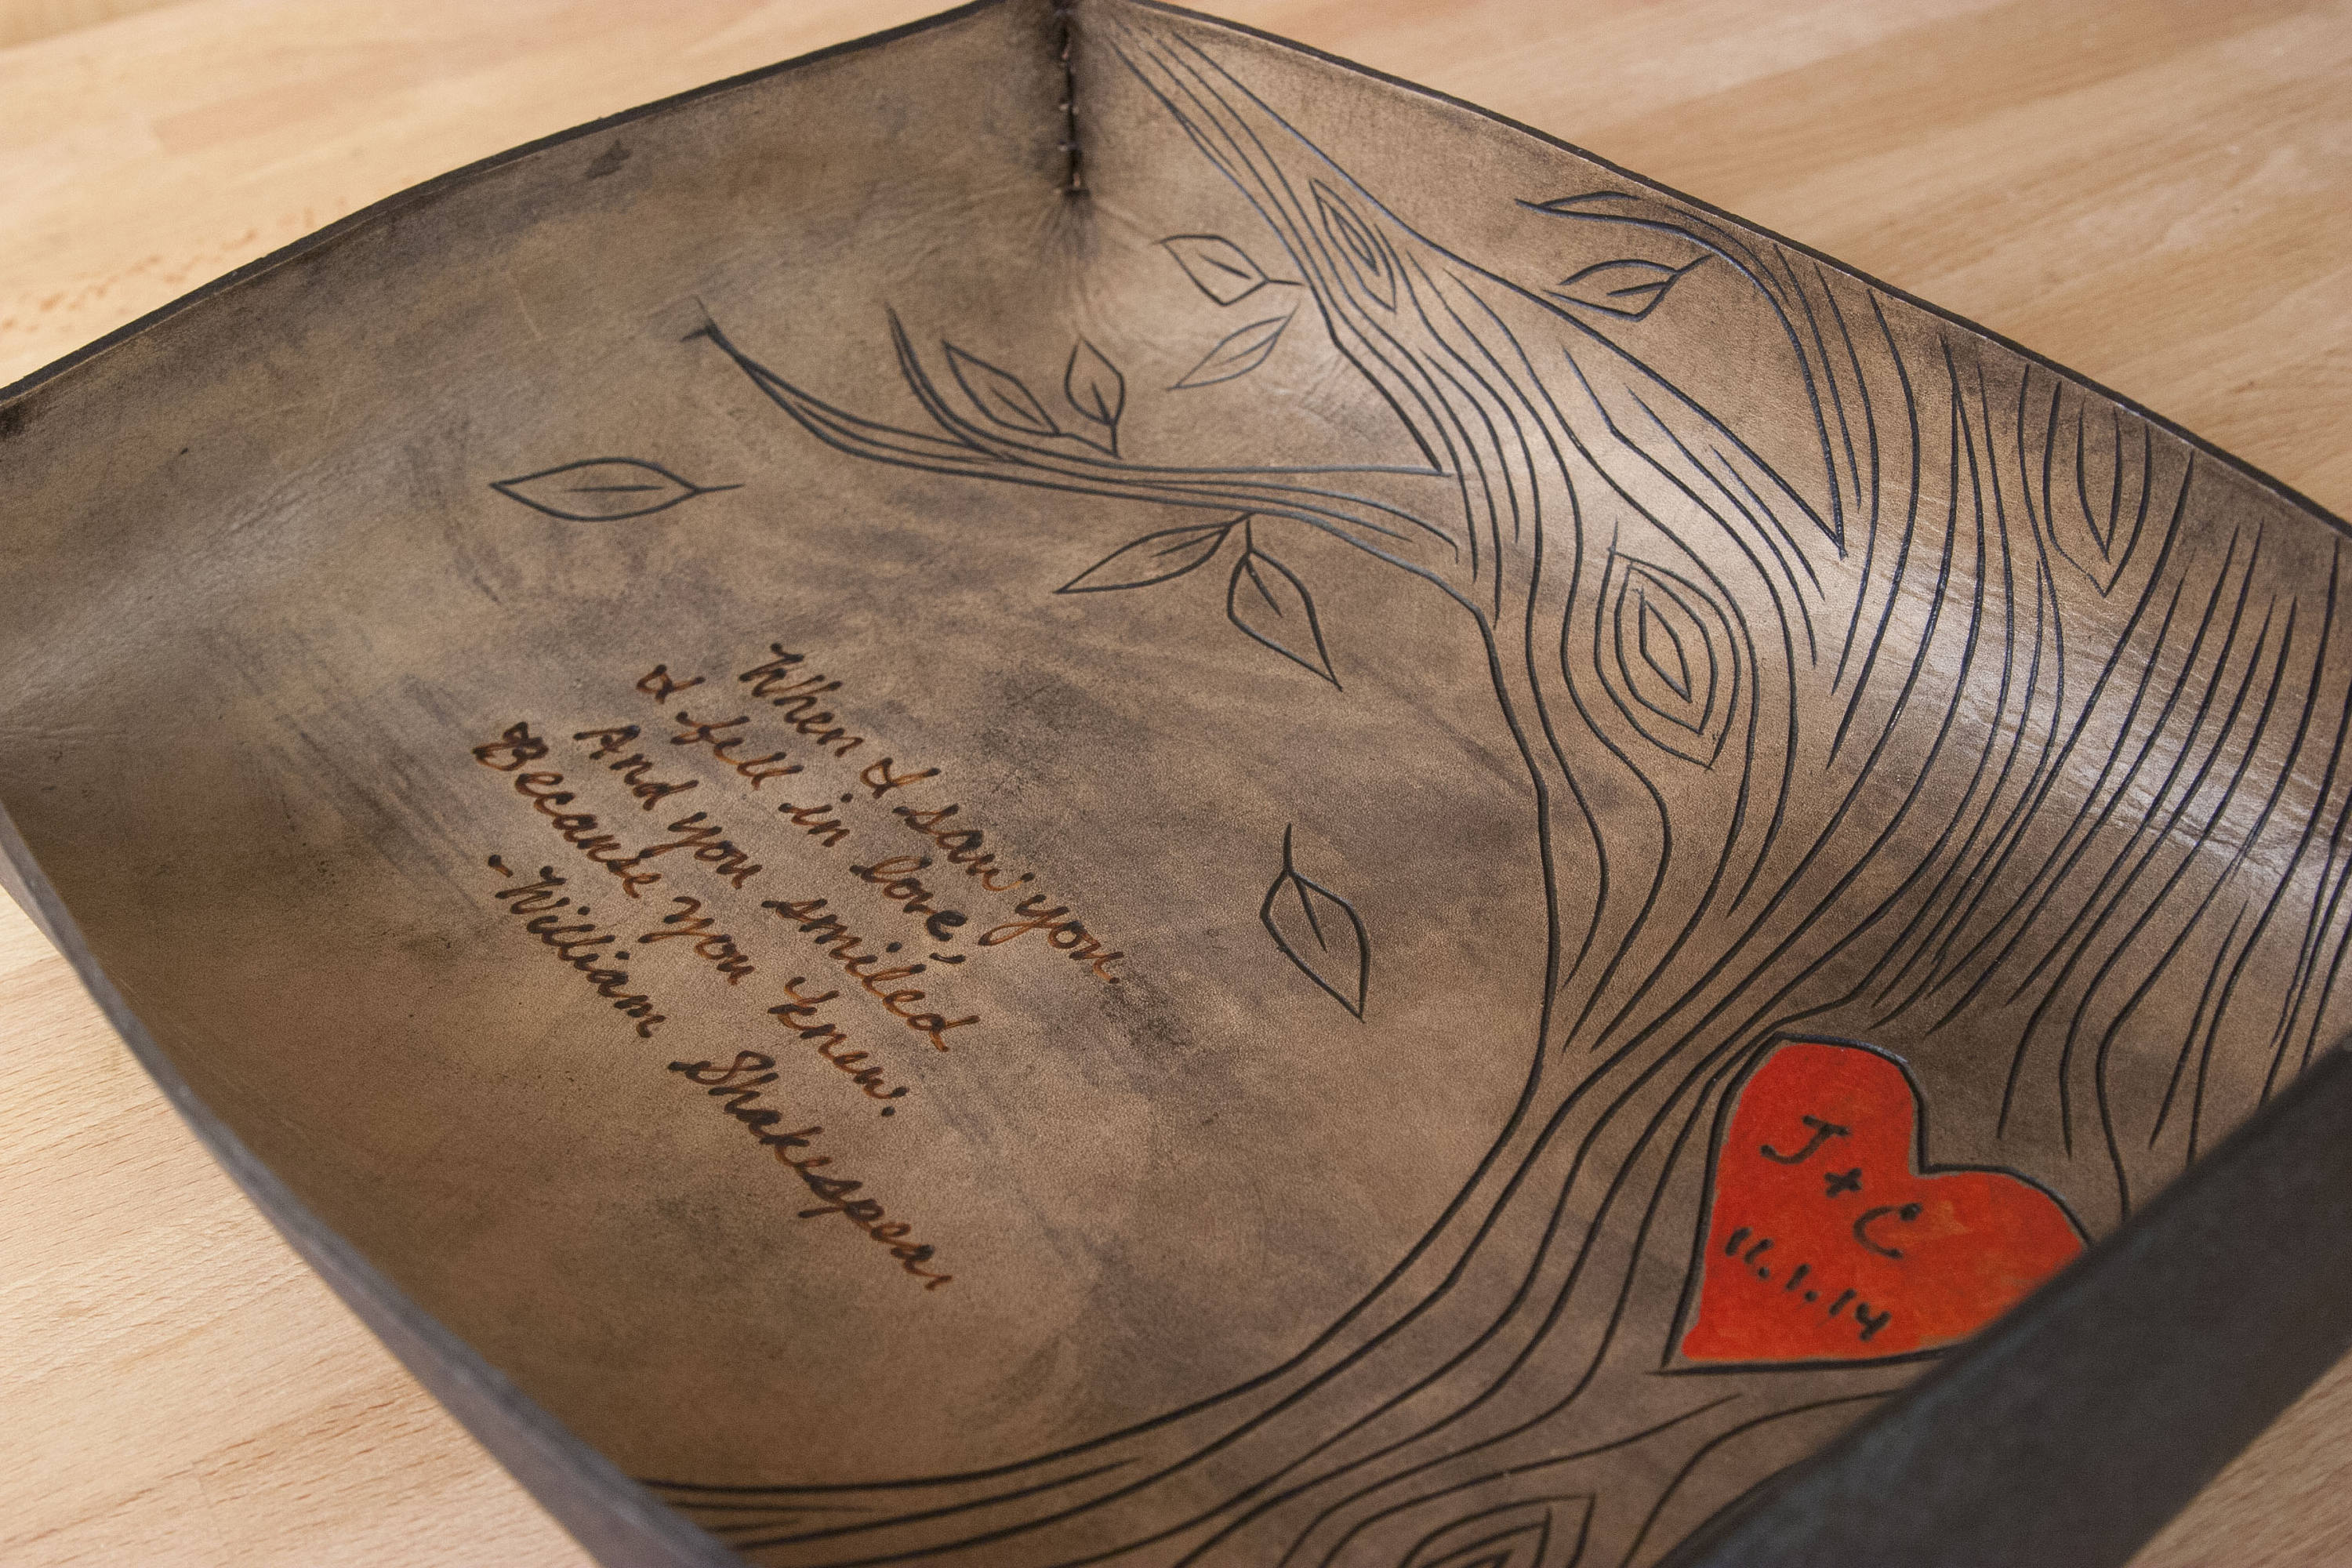 When I saw you.
I fell in love,
And you smiled
Because you knew.
-William Shakespear
J + C
11.1.14